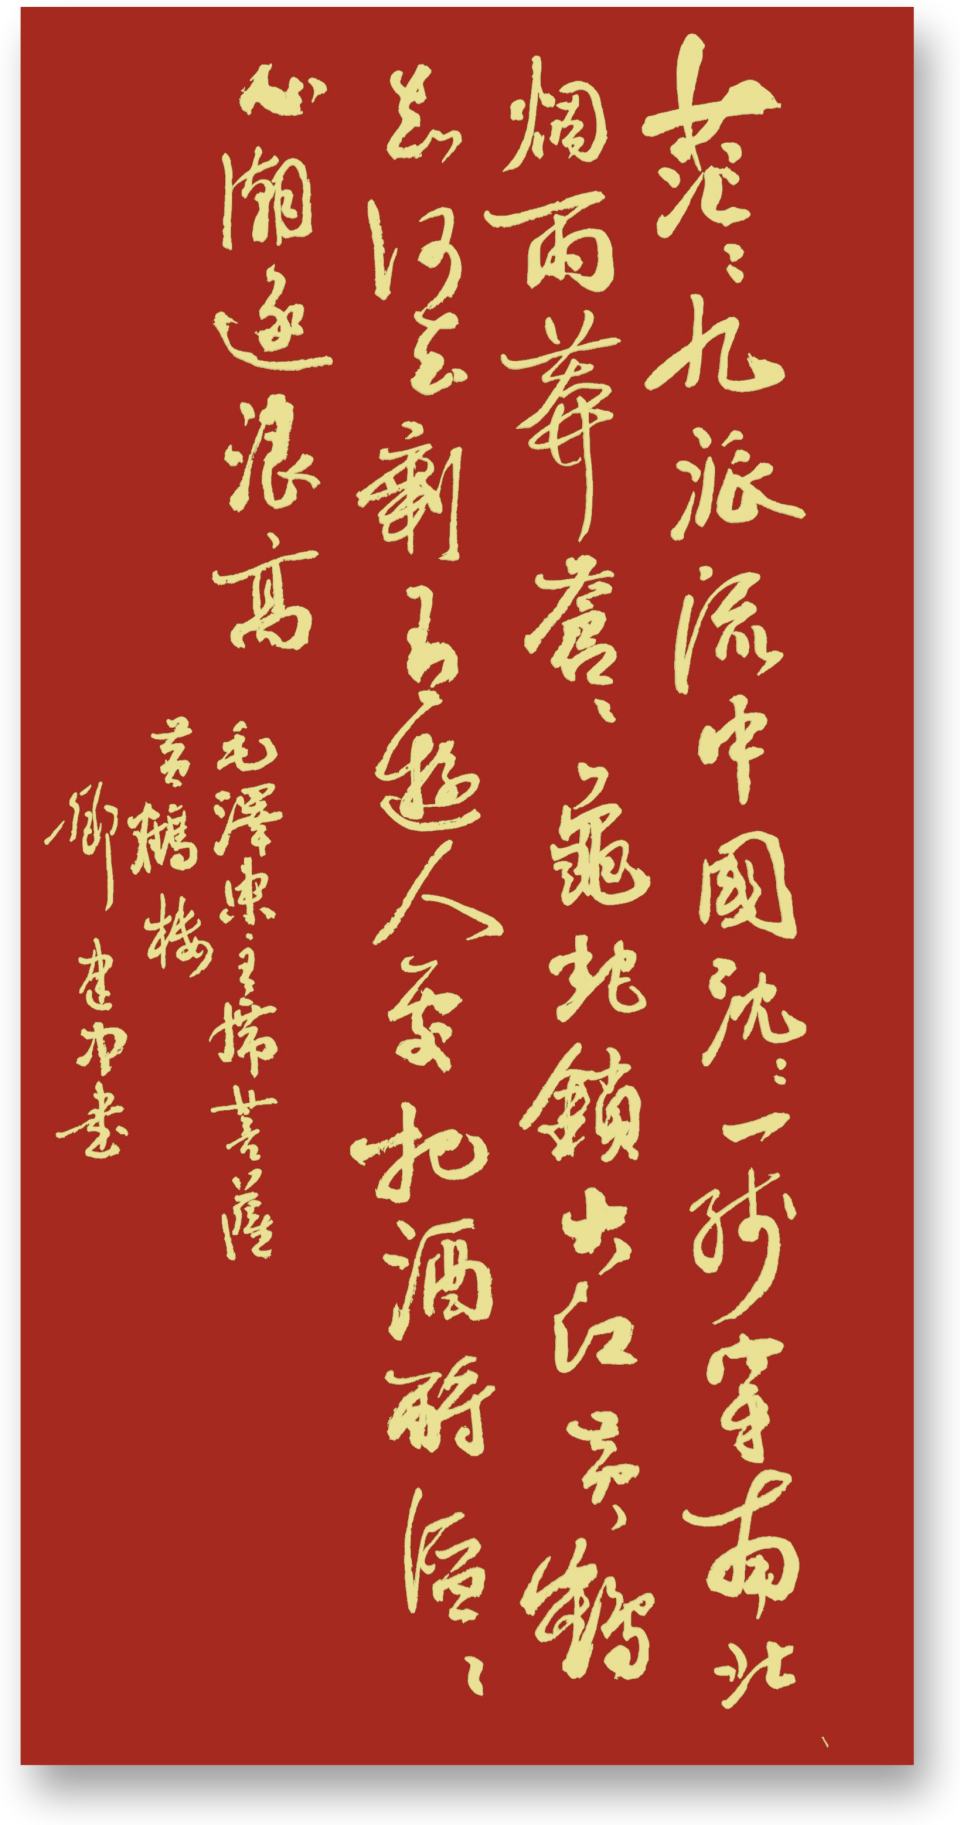 茫〻九派流中國沈〻一線穿南北
煙雨莽蒼〻龜蛇鎖大江黃鶴
知何去剩有遊人處把酒酹滔〻
心潮逐浪高
毛澤東主席菩薩
黃鶴樓
鄉建中書